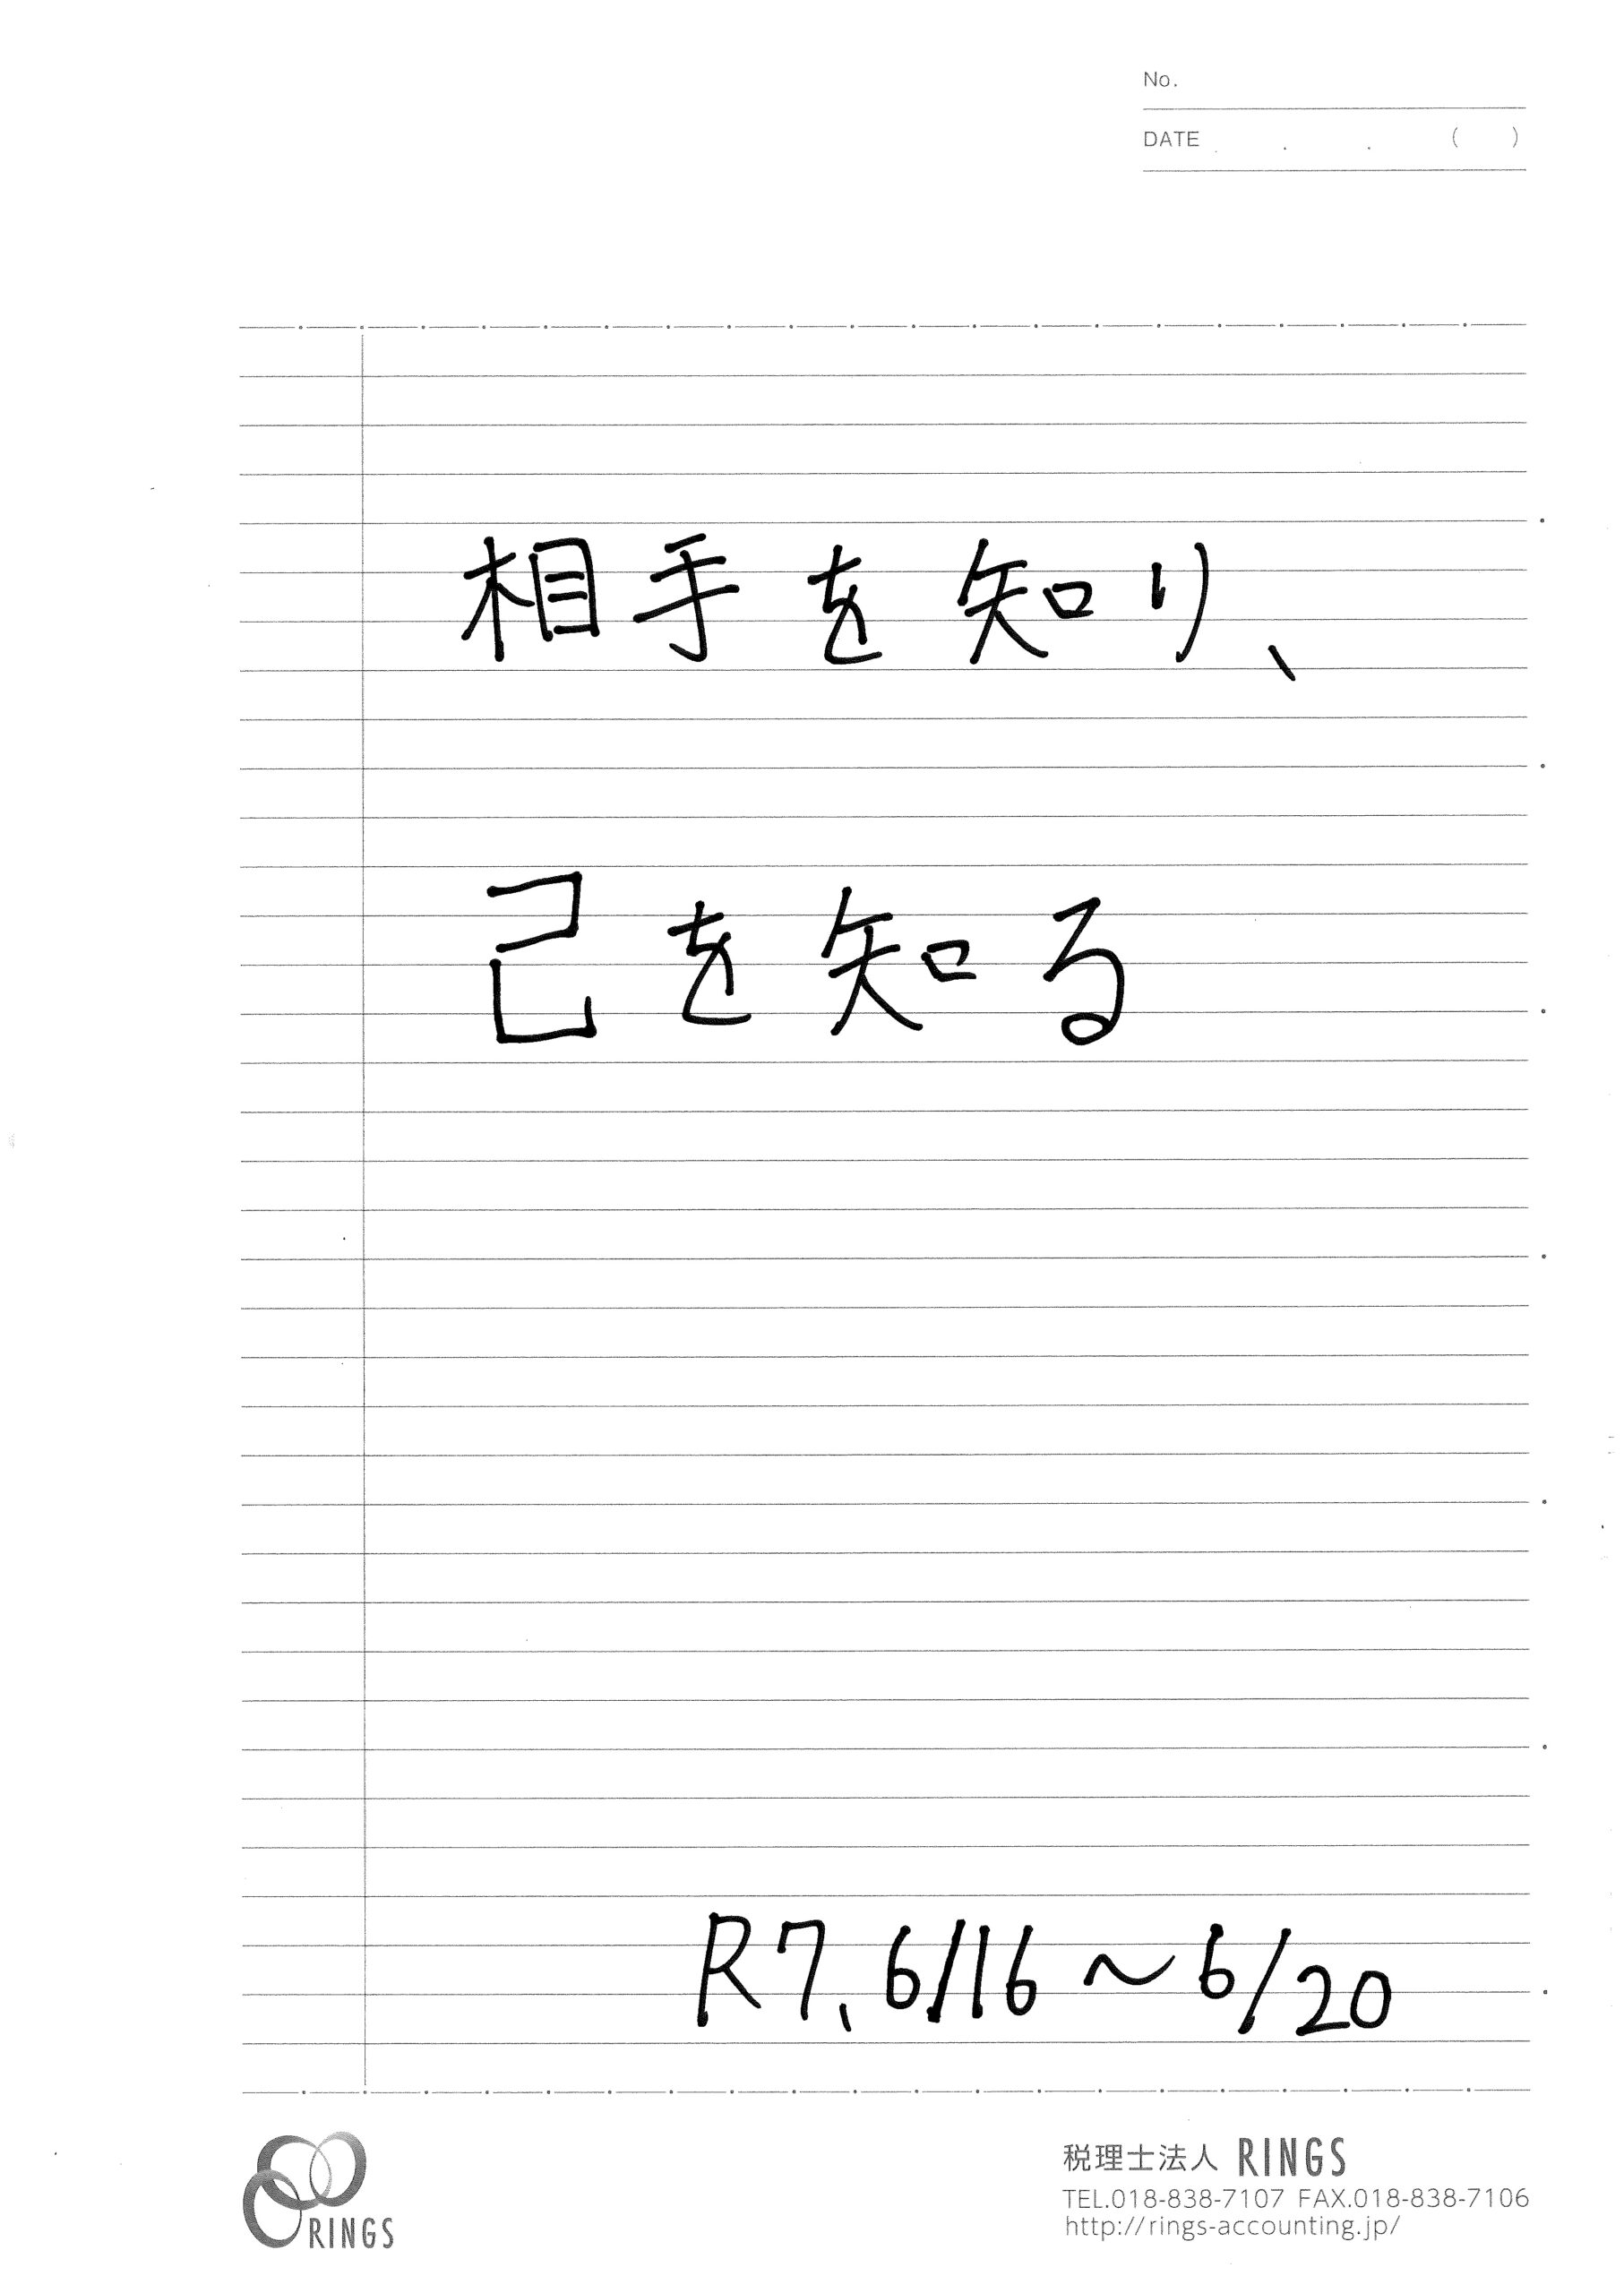 No.
DATE . . . ( )
相手を知り、
己を知る
R7、6/16～6/20
RINGS
税理士法人 RINGS
TEL.018-838-7107 FAX.018-838-7106
http://rings-accounting.jp/